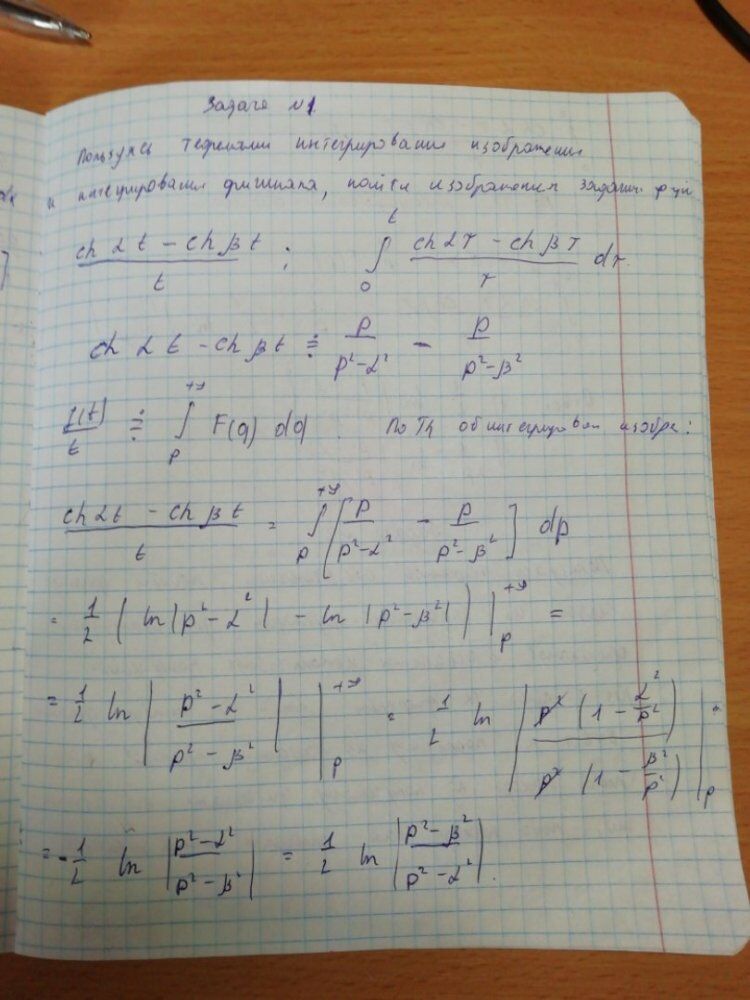 Задача №1.
Пользуясь теоремами интегрирования изображения
и интегрирования оригинала, найти изображения заданных функ
(ch αt − ch βt)/t ; ∫₀ᵗ (ch ατ − ch βτ)/τ dτ.
ch αt − ch βt ≓ p/(p²−α²) − p/(p²−β²)
f(t)/t ≓ ∫ₚ^{+∞} F(q) dq. По Th об интегрировании изобр:
(ch αt − ch βt)/t = ∫ₚ^{+∞} [p/(p²−α²) − p/(p²−β²)] dp
= 1/2 (ln|p²−α²| − ln|p²−β²|) |ₚ^{+∞} =
= 1/2 ln |(p²−α²)/(p²−β²)| |ₚ^{+∞} = 1/2 ln |p²(1−α²/p²)/(p²(1−β²/p²))|ₚ
= −1/2 ln |(p²−α²)/(p²−β²)| = 1/2 ln |(p²−β²)/(p²−α²)|.